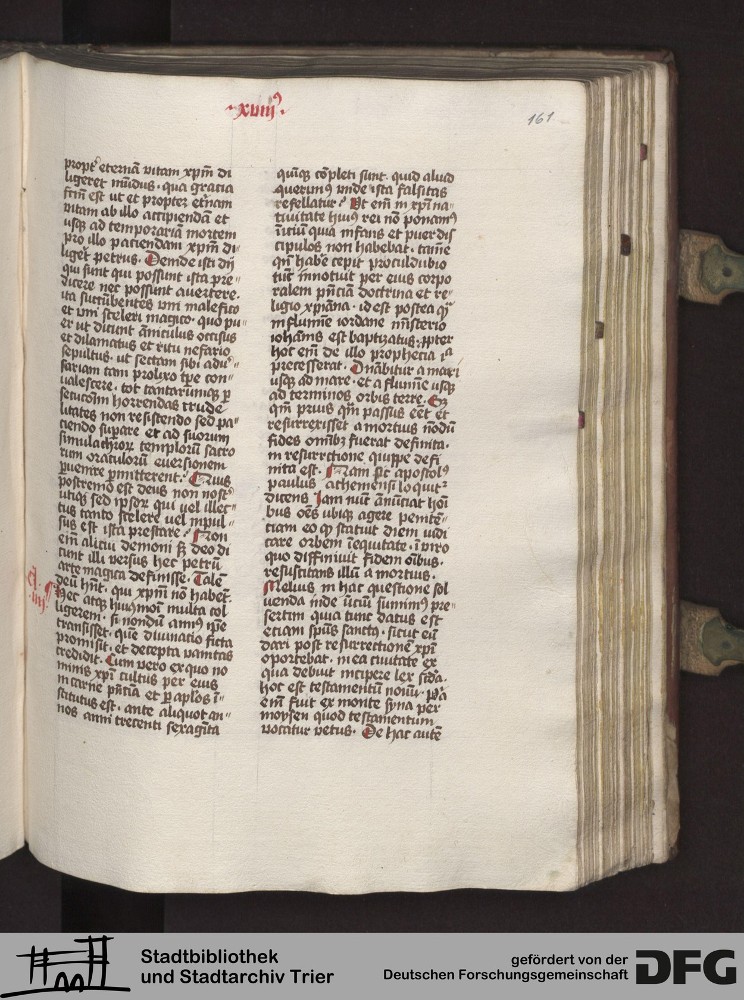 ·xviijꝰ·
161
propt̉ eternā vitam xp̄m di
ligeret mūdus · qua gracia
frm̄ est ut et propter et̓nam
vitam ab illo accipiendā et
usqꝫ ad temporariā mortem
pro illo paciendam xp̄m di⸗
liget̉ petrus · Deinde isti dij
qui sunt qui possunt ista pre⸗
dicere nec possunt auertere ·
ita succūbentes vni malefico
et vni sceleri magico · quo pu⸗
er ut dicunt āniculus occisus
et dilaniatus et ritu nefario
sepultus · ut sectam sibi adu̓⸗
sariam tam prolixo tp̄e con⸗
ualescere · tot tantarumqꝫ ꝑ
secucōm̄ horrendas crude⸗
litates non resistendo sed pa⸗
ciendo supare et ad suorum
simulachroꝝ templorū sacro
rum oraculorū euersionem
ꝑuenire ꝑmitterent · Quis
postremo est deus non nost̓
utiqꝫ sed ipsoꝝ qui uel illec⸗
tus tanto scelere uel inpul⸗
sus est ista prestare · Non
em̄ alicui demoni sꝫ deo di
cunt illi versus hec petrū
arte magica definisse · Talē
deū hn̄t · qui xp̄m nō habet ·
Hec atqꝫ huiꝰmōi multa col
ligerem · si nondū annꝰ ip̄e
transisset · quē diuinatio ficta
promisit · et decepta vanitas
credidit · Cum vero ex quo no
minis xp̄i cultus per eiꝰ
in carne p̄nciā et ꝑ aplōs ī⸗
stitutus est · ante aliquot an⸗
nos anni trecenti sexagīta
quīqꝫ cōpleti sunt · quid aliud
querimꝰ vnde ista falsitas
refellatur · Vt em̄ in xp̄i na⸗
tiuitate huiꝰ rei nō ponamꝰ
iniciū quia infans et puer dis
cipulos non habebat · tamē
qn̄ hab̓e cepit proculdubio
tūc innotuit per eius corpo
ralem p̄nciā doctrina et re⸗
ligio xp̄iana · id est postea qͣꝫ
in flumīe iordane mīsterio
iohānis est baptizatus · ꝓpter
hoc em̄ de illo prophecia illa
precesserat · Dn̄abitur a mari
usqꝫ ad mare · et a flumīe usqꝫ
ad terminos orbis terre ·
qm̄ prius qͣm passus eēt et
resurrexisset a mortuis nōdū
fides omībꝫ fuerat definita ·
in resurrctione quippe defi
nita est · Nam sic apostolꝰ
paulus athemensi͛ loquit̉
dicens · Iam nūc anūciat hoī
bus oēs ubiqꝫ agere penitē⸗
ciam eo qꝫ statuit diem iudi
care orbem ī equitate · ī viro
quo diffiniuit fidem oībus ·
resuscitans illū a mortuis ·
Melius in hac questione sol
uenda inde iniciū sumimꝰ pre⸗
sertim quia tunc datus est
etiam spūs sanctꝰ · sicut eū
dari post resurrectionē xp̄i
oportebat · in ea ciuitate ex
qua debuit incipere lex secūda ·
hoc est testamentū nouū · Pͥa
em̄ fuit ex monte syna per
moysen quod testamentum
vocatur vetus · De hac autē
Stadtbibliothek
und Stadtarchiv Trier
gefördert von der
Deutschen Forschungsgemeinschaft
DFG